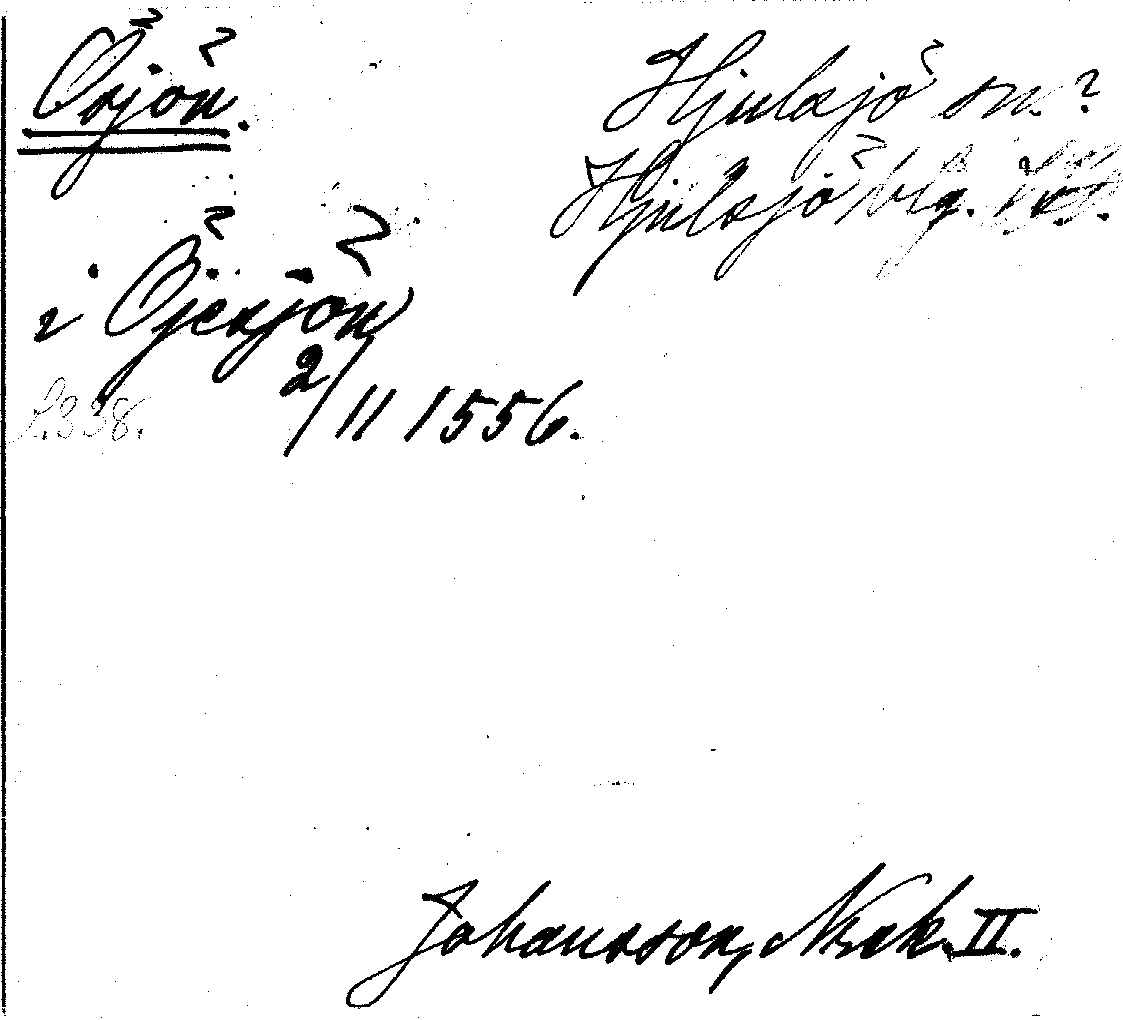 Örjön.
Hjulsjö sn.?
Hjulsjö blg.
i Öjersjön
2/11 1556.
s. 338.
Johansson, Nrsk. II.